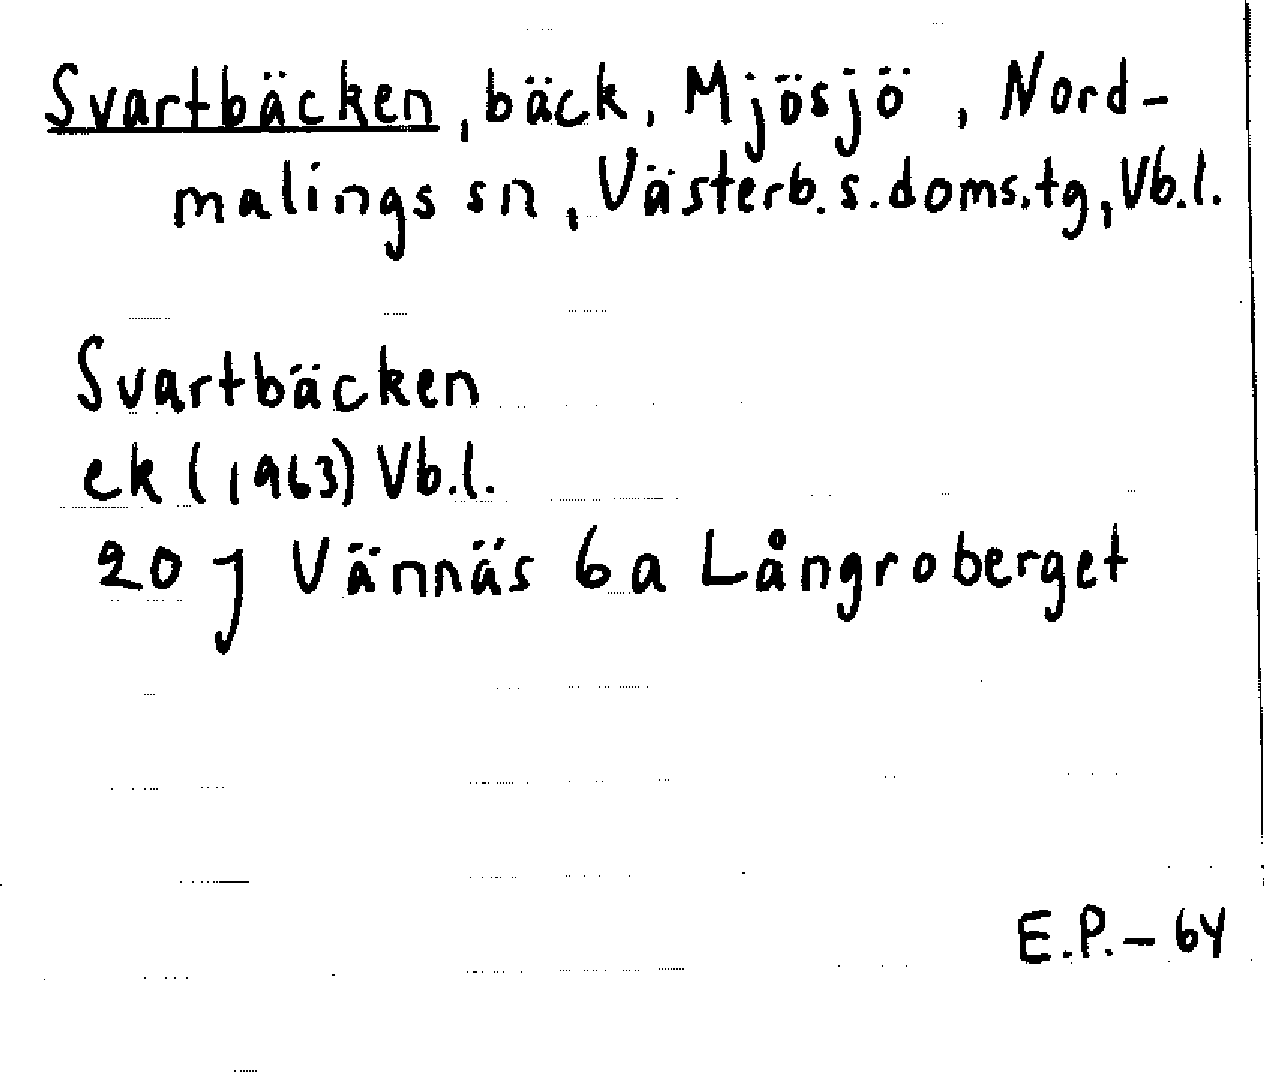 Svartbäcken, bäck, Mjösjö, Nord-
malings sn, Västerb. s. doms. tg, Vb.l.
Svartbäcken
ek (1963) Vb.l.
20 J Vännäs 6a Långroberget
E.P. - 64